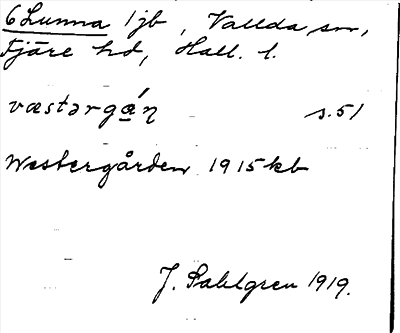 6 Lunna 1 jb, Vallda sn,
Fjäre hd, Hall. l.
væstərgá̱ꞑ s. 51
Westergården 1915 kb
J. Sahlgren 1919.